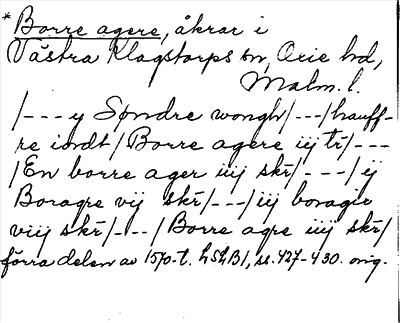 * Borre agere, åkrar i
Västra Klagstorps sn, Oxie hd,
Malm. l.
/---y Søndre wongh/---/hauff-
re iordt/Borre agere iij tr/---
/En borre ager iiij skr/---/ij
Boragre vij skr/---/iij boragre
viij skr/---/Borre agre iiij skr/
förra delen av 1570-t. LSLB1, ss. 427-430. orig.